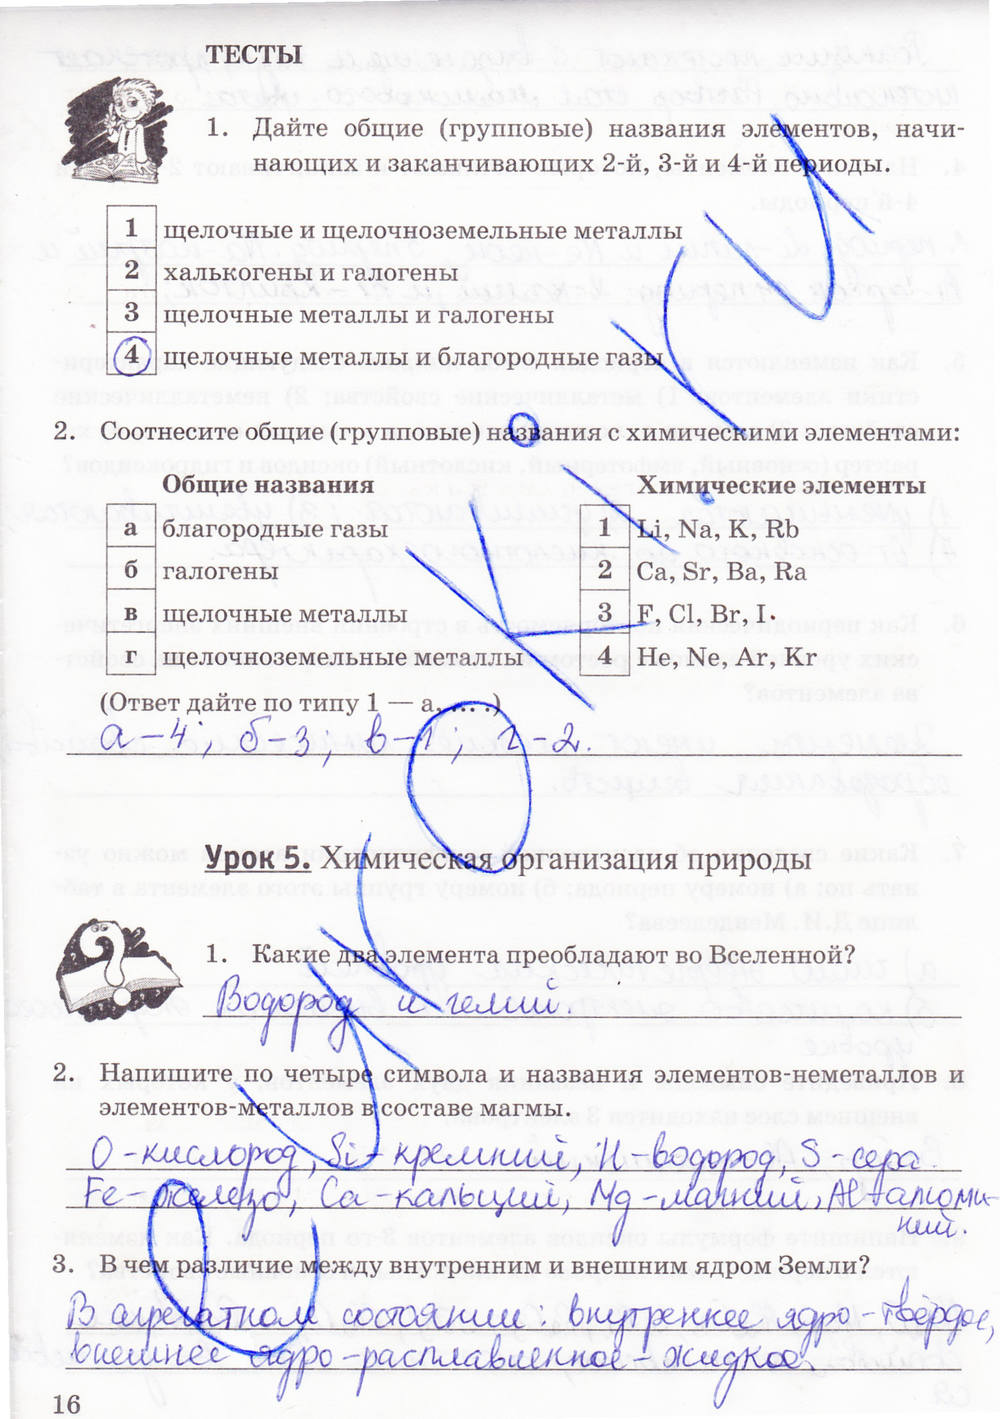 ТЕСТЫ
1. Дайте общие (групповые) названия элементов, начи-
нающих и заканчивающих 2-й, 3-й и 4-й периоды.
1 щелочные и щелочноземельные металлы
2 халькогены и галогены
3 щелочные металлы и галогены
4 щелочные металлы и благородные газы
2. Соотнесите общие (групповые) названия с химическими элементами:
Общие названия Химические элементы
а благородные газы 1 Li, Na, K, Rb
б галогены 2 Ca, Sr, Ba, Ra
в щелочные металлы 3 F, Cl, Br, I.
г щелочноземельные металлы 4 He, Ne, Ar, Kr
(Ответ дайте по типу 1 — а, ... .)
а-4; б-3, в-1, г-2.
Урок 5. Химическая организация природы
1. Какие два элемента преобладают во Вселенной?
Водород и гелий.
2. Напишите по четыре символа и названия элементов-неметаллов и
элементов-металлов в составе магмы.
O-кислород, Si-кремний, H-водород, S-сера.
Fe-железо, Ca-кальций, Mg-магний, Al-алюми-
ний.
3. В чем различие между внутренним и внешним ядром Земли?
В агрегатном состоянии: внутреннее ядро-твёрдое,
внешнее ядро-расплавленное-жидкое.
16